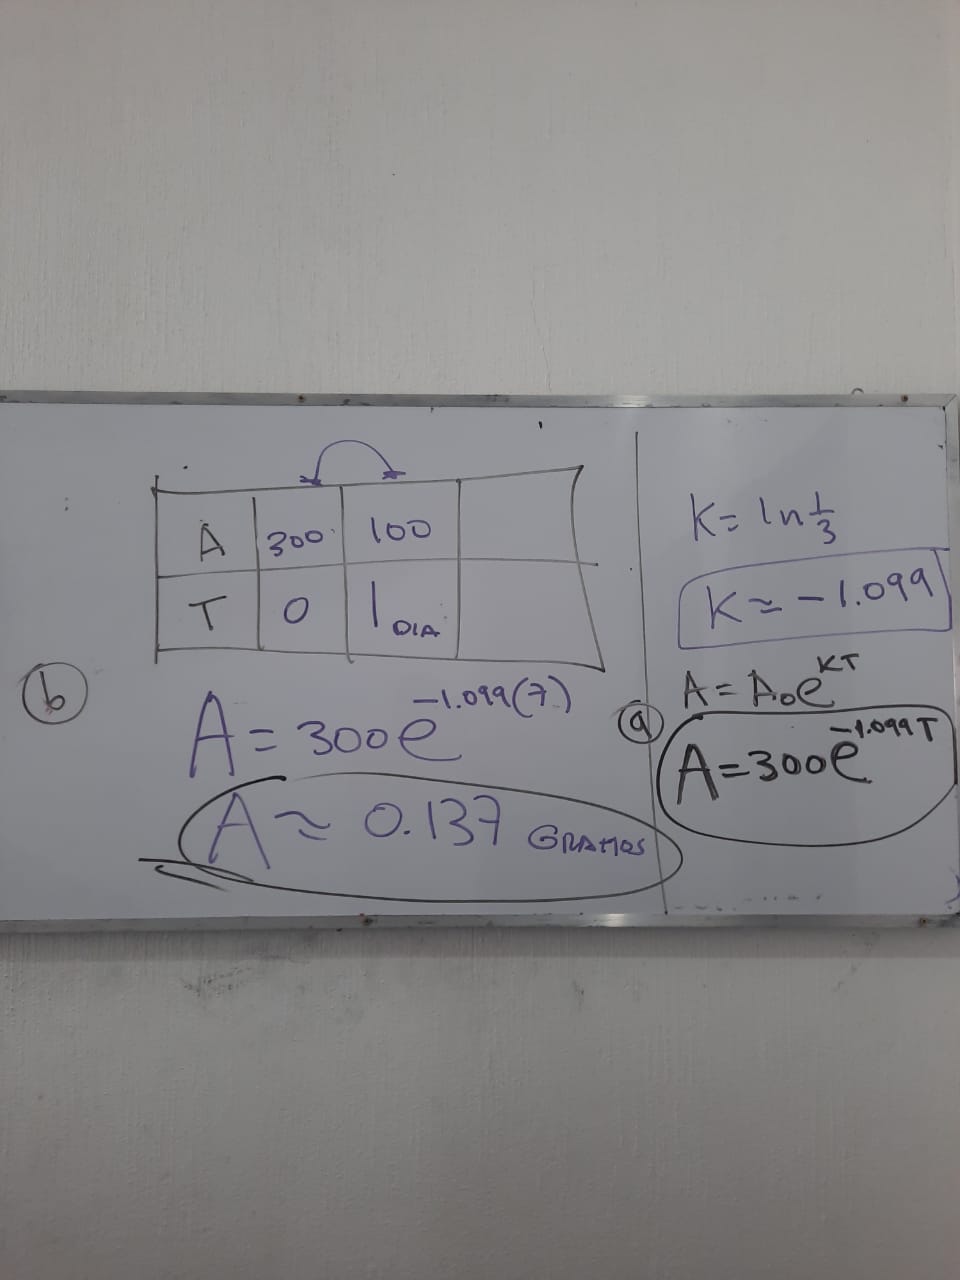 A 300 100
T 0 1 DIA
b
A = 300e^-1.099(7)
A ≈ 0.137 GRAMOS
K = ln 1/3
K ≈ -1.099
A = A₀e^KT
a
A = 300e^-1.099T